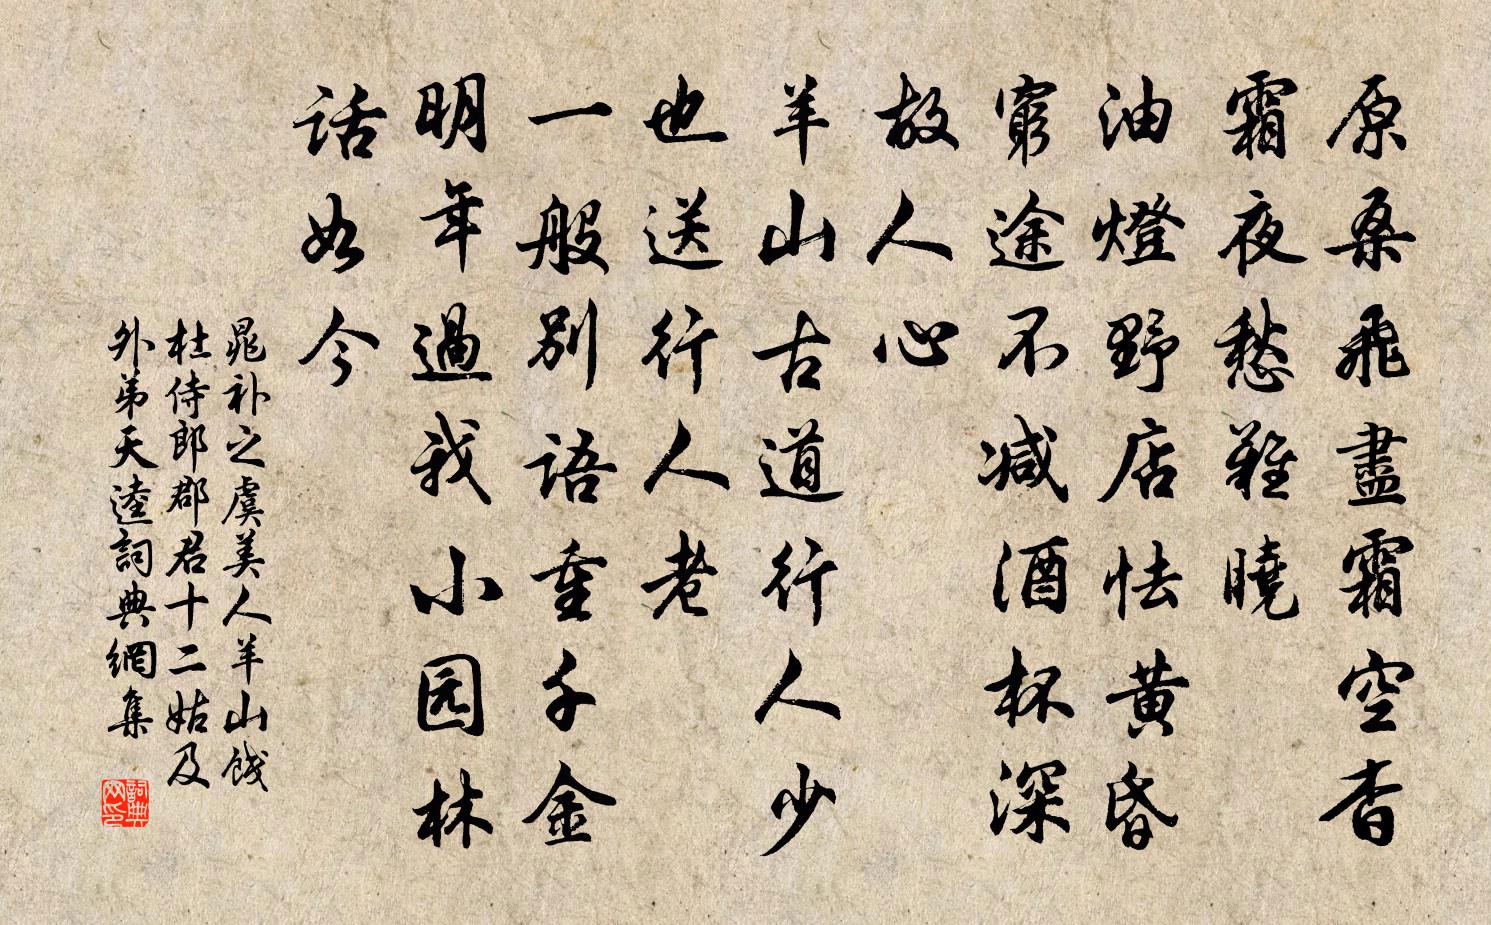 原桑飛盡霜空杳
霜夜愁難曉
油燈野店怯黄昏
窮途不减酒杯深
故人心
羊山古道行人少
也送行人老
一般別語重千金
明年過我小园林
話如今
晁补之虞美人羊山餞
杜侍郎郡君十二姑及
外弟天逵詞典網集
詞典
网印